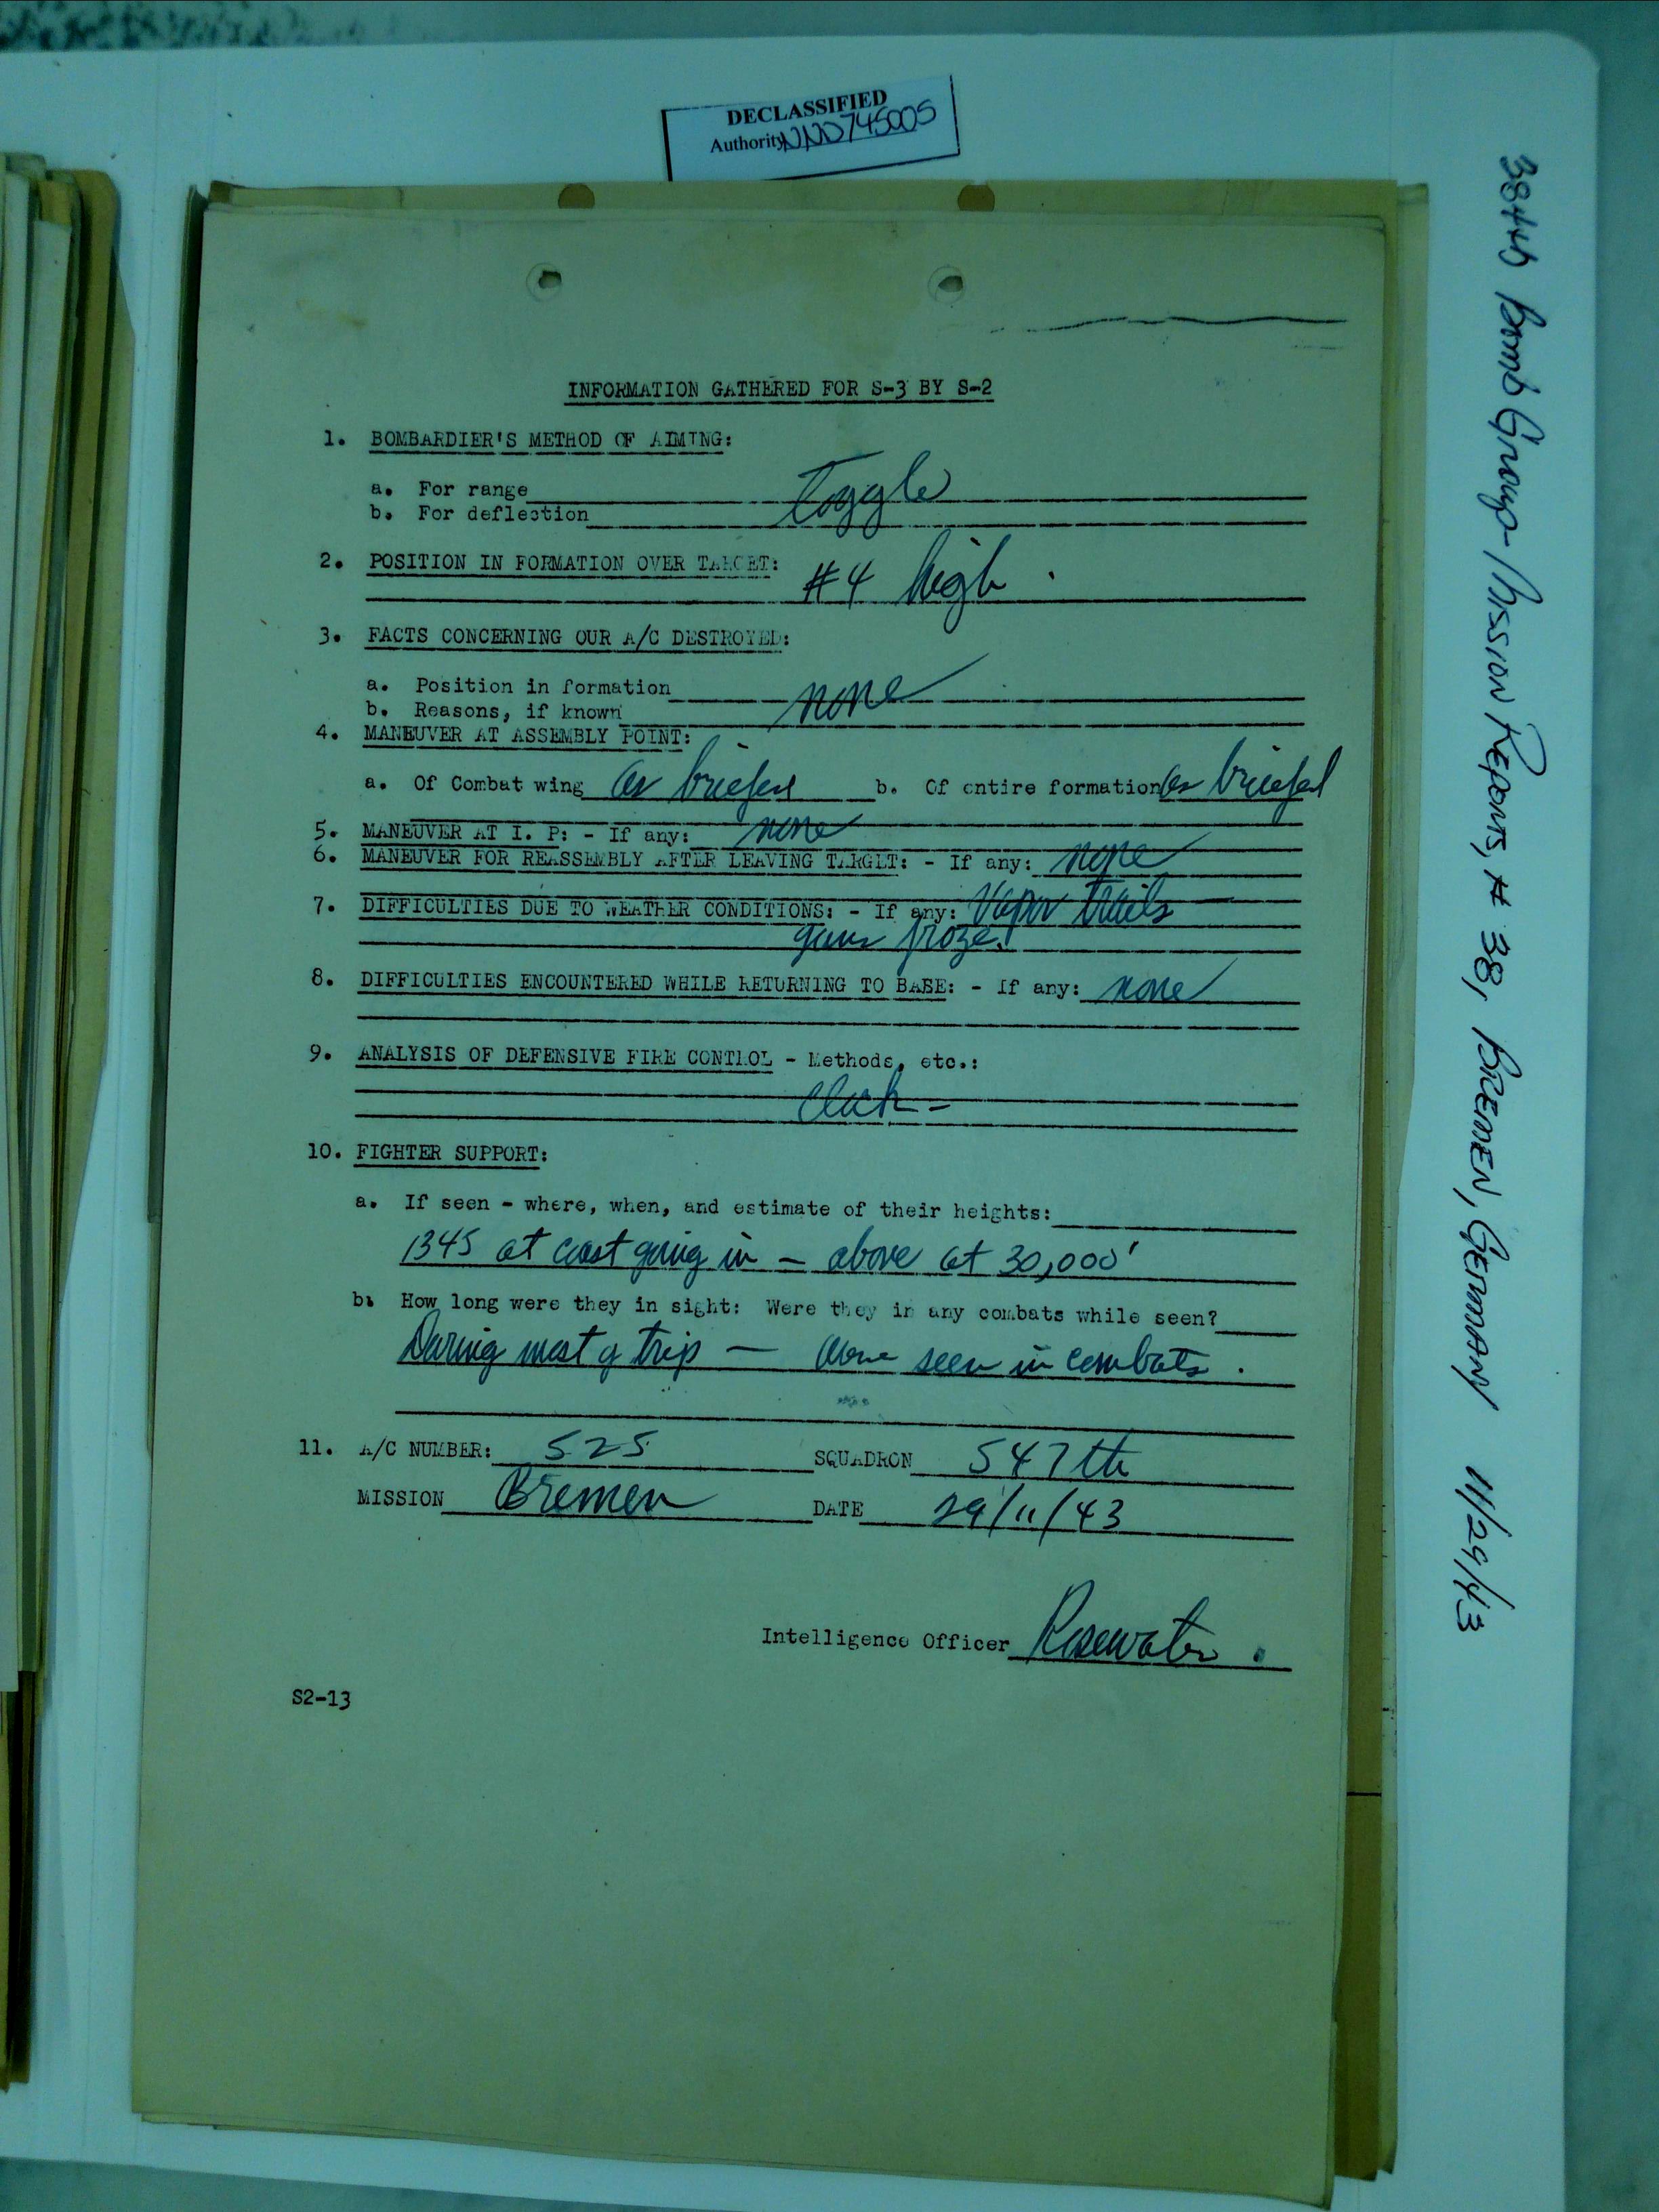 DECLASSIFIED
Authority NND745005
INFORMATION GATHERED FOR S-3 BY S-2
1. BOMBARDIER'S METHOD OF AIMING:
a. For range Toggle
b. For deflection
2. POSITION IN FORMATION OVER TARGET: #4 high.
3. FACTS CONCERNING OUR A/C DESTROYED:
a. Position in formation none
b. Reasons, if known
4. MANEUVER AT ASSEMBLY POINT:
a. Of Combat wing as briefed b. Of entire formation as briefed
5. MANEUVER AT I. P: - If any: none
6. MANEUVER FOR REASSEMBLY AFTER LEAVING TARGET: - If any: none
7. DIFFICULTIES DUE TO WEATHER CONDITIONS: - If any: Vapor trails
guns froze.
8. DIFFICULTIES ENCOUNTERED WHILE RETURNING TO BASE: - If any: none
9. ANALYSIS OF DEFENSIVE FIRE CONTROL - Methods, etc.:
10. FIGHTER SUPPORT:
a. If seen - where, when, and estimate of their heights:
1345 at coast going in - above at 30,000'
b. How long were they in sight: Were they in any combats while seen?
During most of trip - seen in combats.
11. A/C NUMBER: 525 SQUADRON 547th
MISSION Bremen DATE 29/11/43
Intelligence Officer Rosewater.
S2-13
384th Bomb Group - Mission Reports, # 38, BREMEN, GERMANY 11/29/43